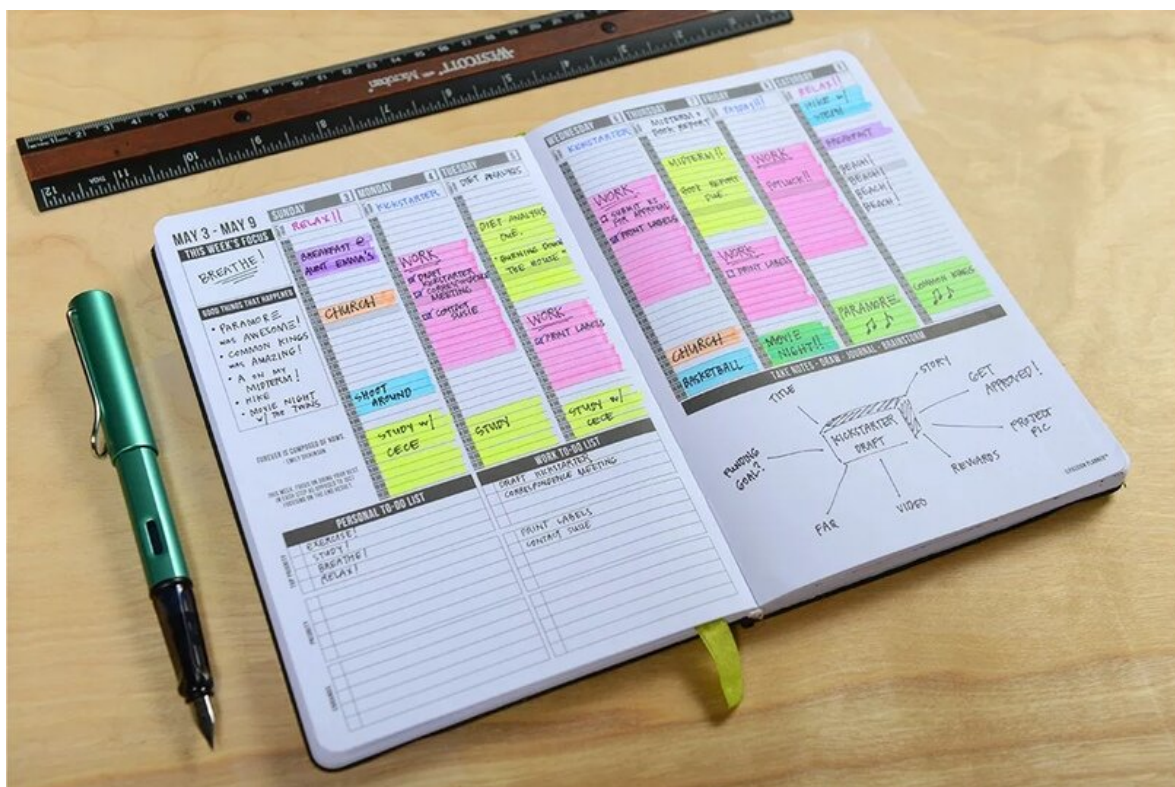 WESTCOTT
MAY 3 - MAY 9
THIS WEEK'S FOCUS
BREATHE!
GOOD THINGS THAT HAPPENED
• PARAMORE
WAS AWESOME!
• COMMON KINGS
WAS AMAZING!
• A ON MY
MIDTERM!
• HIKE
• MOVIE NIGHT
W/ THE TWINS
FOREVER IS COMPOSED OF NOWS.
EMILY DICKINSON
THIS WEEK, FOCUS ON DOING YOUR BEST
IN EACH STEP AS OPPOSED TO JUST
FOCUSING ON THE END RESULT.
SUNDAY 3
RELAX!!
BREAKFAST @
AUNT EMMA'S
CHURCH
SHOOT
AROUND
STUDY W/
CECE
MONDAY 4
KICKSTARTER
WORK
DRAFT
KICKSTARTER
CORRESPONDENCE
MEETING
CONTACT
SUSIE
STUDY
TUESDAY 5
DIET ANALYSIS
DIET ANALYSIS
DUE.
"BURNING DOWN
THE HOUSE"
WORK
PRINT LABELS
STUDY W/
CECE
PERSONAL TO-DO LIST
EXERCISE!
STUDY!
BREATHE!
RELAX!
WORK TO-DO LIST
DRAFT KICKSTARTER
CORRESPONDENCE MEETING
PRINT LABELS
CONTACT SUSIE
WEDNESDAY 6
KICKSTARTER
WORK
SUBMIT KS
FOR APPROVAL
PRINT LABELS
CHURCH
BASKETBALL
THURSDAY 7
MIDTERM &
BOOK REPORT
MIDTERM!!
BOOK REPORT
DUE
WORK
PRINT LABELS
MOVIE
NIGHT!!
FRIDAY
WORK
POTLUCK!!
PARAMORE
SATURDAY
RELAX!!
HIKE W/
BREAKFAST
BEACH!
BEACH!
BEACH!
BEACH!
COMMON KINGS
TAKE NOTES - DRAW - JOURNAL - BRAINSTORM
TITLE
STORY
GET
APPROVED!
KICKSTARTER
DRAFT
PROJECT
PIC
FUNDING
GOAL?
REWARDS
VIDEO
FAR
PASSION PLANNER